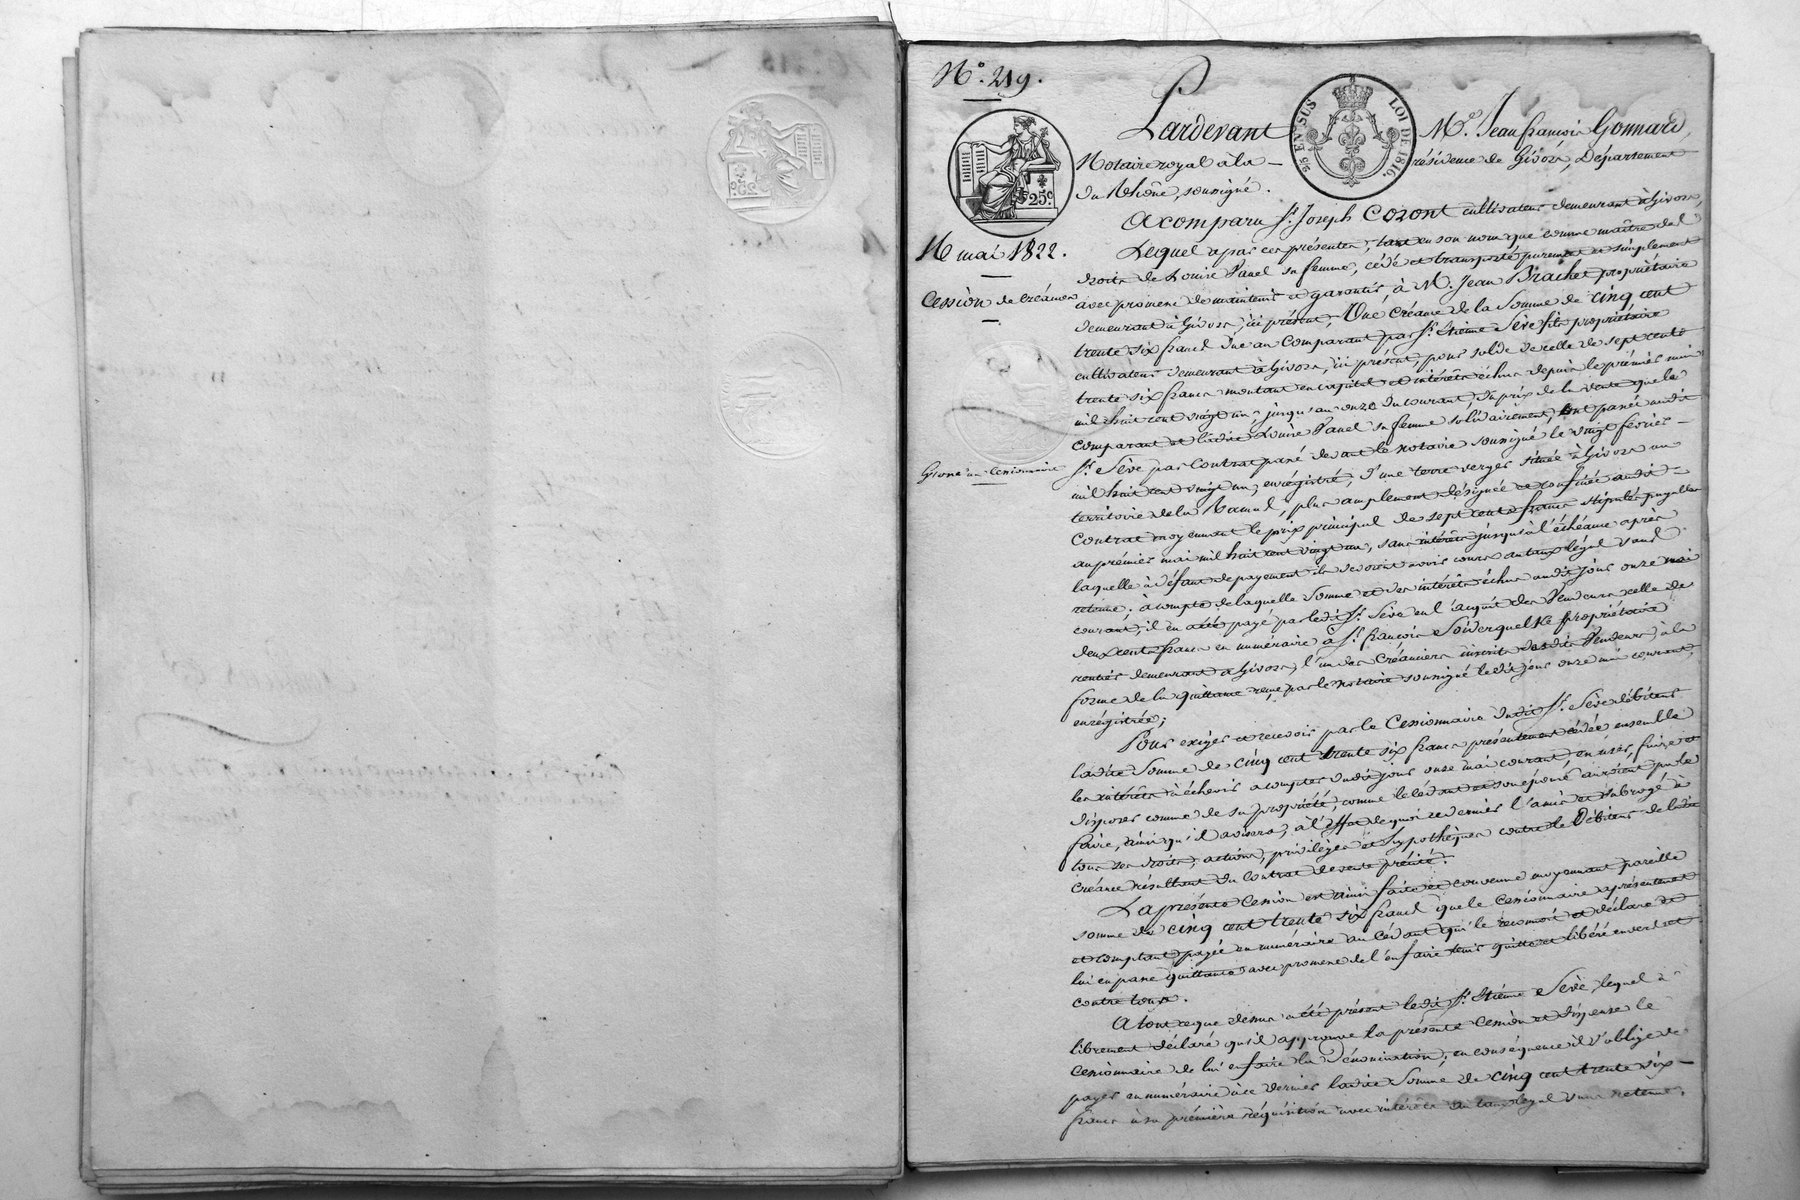 N.° 219.
25 EN SUS LOI DE 1816.
25c
16 mai 1822.
Cession de Créance
Grosse au Cessionnaire
Pardevant M.e Jean françois Gonnard,
Notaire royal à la résidence de Givors, Département
du Rhône, soussigné.
A comparu S.r Joseph Coront cultivateur demeurant à Givors,
Lequel a par ces présentes, tant en son nom que comme maître des
droits de Louise Panel sa femme, cédé et transporté purement et simplement
avec promesse de maintenir et garantir, à M. Jean Brachet propriétaire
demeurant à Givors, ici présent, Une Créance de la Somme de cinq cent
trente six francs due au Comparant par S.r Etienne Sève fils propriétaire
cultivateur demeurant à Givors, ici présent, pour solde de celle de sept cent
trente six francs montant en capital et intérêts échus depuis le premier mai
mil huit cent vingt un jusqu'au onze du courant, du prix de la vente que le
comparant et ladite Louise Panel sa femme solidairement, ont passée audit
S.r Sève par Contrat passé devant le notaire soussigné le vingt février
mil huit cent vingt un, enregistré, d'une terre verger située à Givors au
territoire de la , plus amplement désignée et confinée audit
Contrat moyennant le prix principal de sept cents francs stipulés payables
au premier mai mil huit cent vingt un, sans intérêts jusqu'à l'échéance après
laquelle à défaut de payement ils devoient avoir cours au taux légal sans
retenue; à compte de laquelle Somme et des intérêts échus audit jour onze mai
courant, il en a été payé par ledit S.r Sève en l'acquit des Vendeurs celle de
deux cents francs en numéraire à S.r françois propriétaire
rentier demeurant à Givors, l'un des Créanciers inscrits desdits Vendeurs, à la
forme de la quittance reçue par le notaire soussigné ledit jour onze mai courant,
enregistrée;
Pour exiger et recevoir par le Cessionnaire dudit S.r Sève débiteur
ladite Somme de cinq cent trente six francs présentement cédée ensemble
les intérêts à échoir à compter dudit jour onze mai courant, en user, faire et
disposer comme de sa propriété, comme le cédant et son épouse auroient pu le
faire, ainsi qu'il avisera; à l'effet de quoi ce dernier l'a mis et subrogé à
tous ses droits, actions, privilèges et hypothèques contre le Débiteur de ladite
Créance résultant du Contrat de vente précité.
La présente Cession est ainsi faite et convenue moyennant pareille
somme de cinq cent trente six francs que le cessionnaire a présentement
et comptant payée en numéraire au Cédant qui le reconnoit et déclare et
lui en passe quittance avec promesse de l'en faire tenir quitte et libéré envers et
contre tous.
A tout ce que dessus a été présent ledit S.r Etienne Sève, lequel a
librement déclaré qu'il approuve la présente Cession et dispense le
Cessionnaire de lui en faire la Dénonciation; en conséquence il s'oblige de
payer en numéraire à ce dernier ladite Somme de cinq cent trente six
francs à sa première réquisition avec intérêts au taux légal sans retenue,